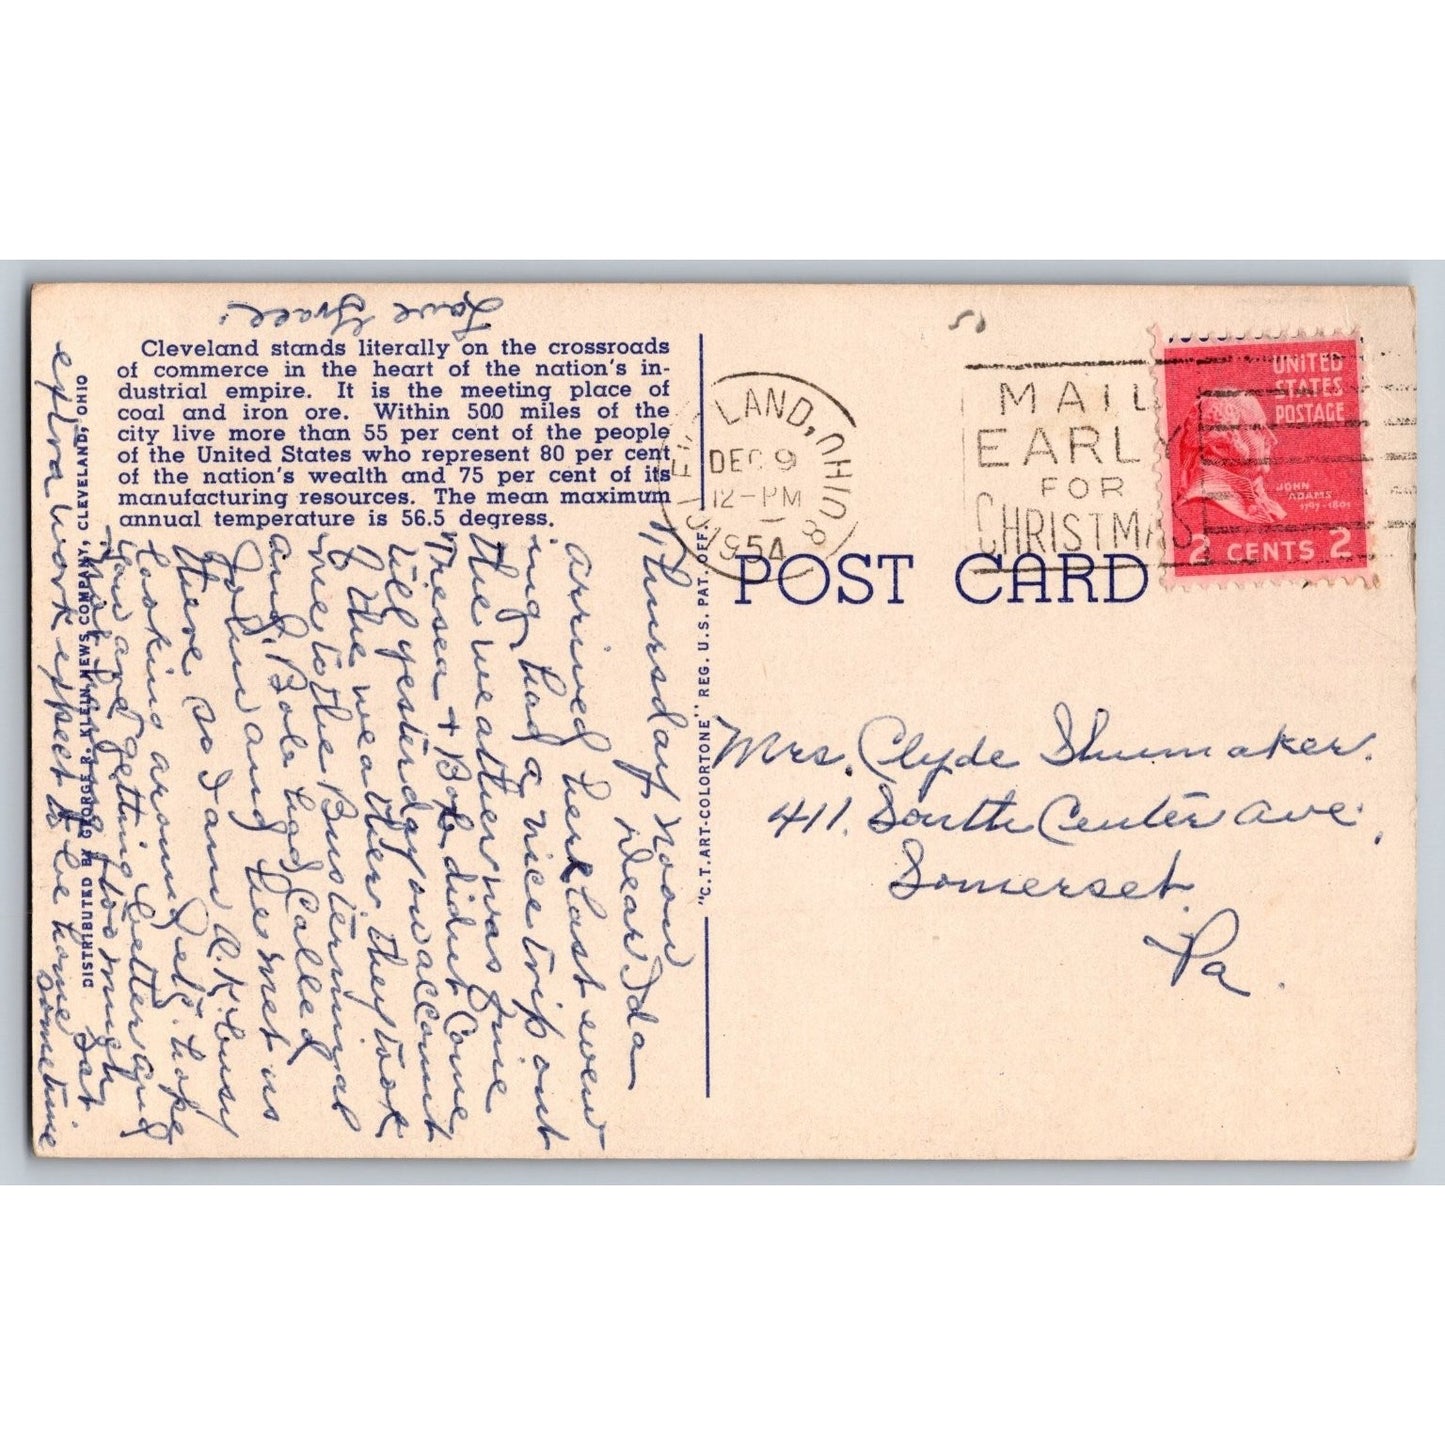 Love Grace.
Cleveland stands literally on the crossroads
of commerce in the heart of the nation's in-
dustrial empire. It is the meeting place of
coal and iron ore. Within 500 miles of the
city live more than 55 per cent of the people
of the United States who represent 80 per cent
of the nation's wealth and 75 per cent of its
manufacturing resources. The mean maximum
annual temperature is 56.5 degress.
Thursday Noon
Dear Ida
arrived here last even
ing had a nice trip out
the weather was fine
Theresa + Bob didnt Come
till yesterday on account
of the weather they took
me to the Bus terminal
and Bob had Called
John and he met us
there so I am O.K. busy
looking around etc. hope
you are getting better and
not too much
extra work expect to be home Sat
sometime
DISTRIBUTED BY GEORGE R. KLEIN NEWS COMPANY, CLEVELAND, OHIO
"C.T. ART-COLORTONE" REG. U.S. PAT. OFF.
CLEVELAND, OHIO 8
DEC 9
12-PM
1954
MAIL
EARLY
FOR
CHRISTMAS
UNITED
STATES
POSTAGE
JOHN
ADAMS
1797-1801
2 CENTS 2
POST CARD
Mrs. Clyde Shumaker.
411. South Center Ave.
Somerset.
Pa.